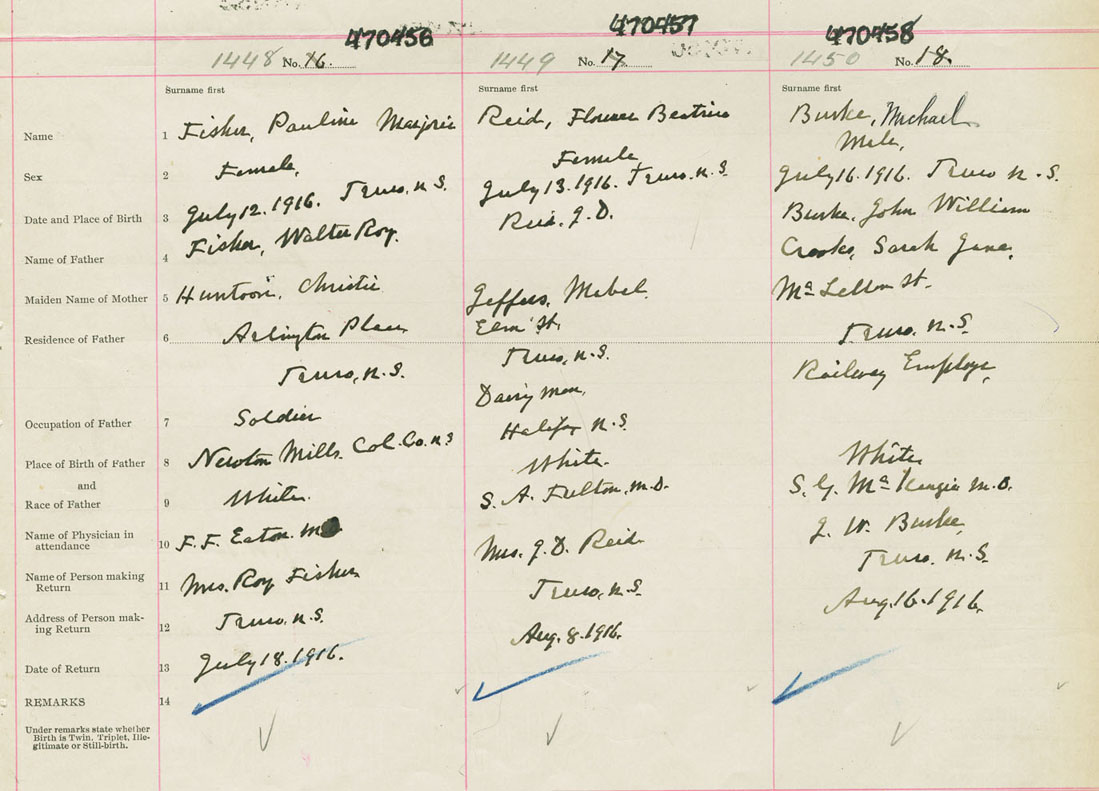 470456
470457
470458
1448 No. 16.
1449 No. 17.
1450 No. 18.
Surname first
Surname first
Surname first
Name
1
Fisher, Pauline Marjorie
Reid, Florence Beatrice
Burke, Michael
Sex
2
Female,
Female,
Male,
Date and Place of Birth
3
July 12. 1916. Truro, N.S.
July 13. 1916. Truro, N.S.
July 16. 1916. Truro N.S.
Name of Father
4
Fisher, Walter Roy.
Reid, J. D.
Burke, John William
Maiden Name of Mother
5
Huntoon, Christie
Jeffers, Mabel.
Crooks, Sarah Jane,
Residence of Father
6
Arlington Place
Truro, N.S.
Elm St,
Truro, N.S.
McLellan St.
Truro, N.S.
Occupation of Father
7
Soldier
Dairyman,
Railway Employe,
Place of Birth of Father
8
Newton Mills. Col. Co. N.S
Halifax N.S.
and
Race of Father
9
White.
White.
White
Name of Physician in
attendance
10
F. F. Eaton. M
S. A. Fulton, M.D.
S. G. McKenzie M.D.
Name of Person making
Return
11
Mrs. Roy Fisher
Mrs. J. D. Reid
J. W. Burke,
Address of Person mak-
ing Return
12
Truro. N.S.
Truro, N.S.
Truro. N.S.
Date of Return
13
July 18. 1916.
Aug. 8. 1916.
Aug. 16. 1916.
REMARKS
14
Under remarks state whether
Birth is Twin, Triplet, Ille-
gitimate or Still-birth.